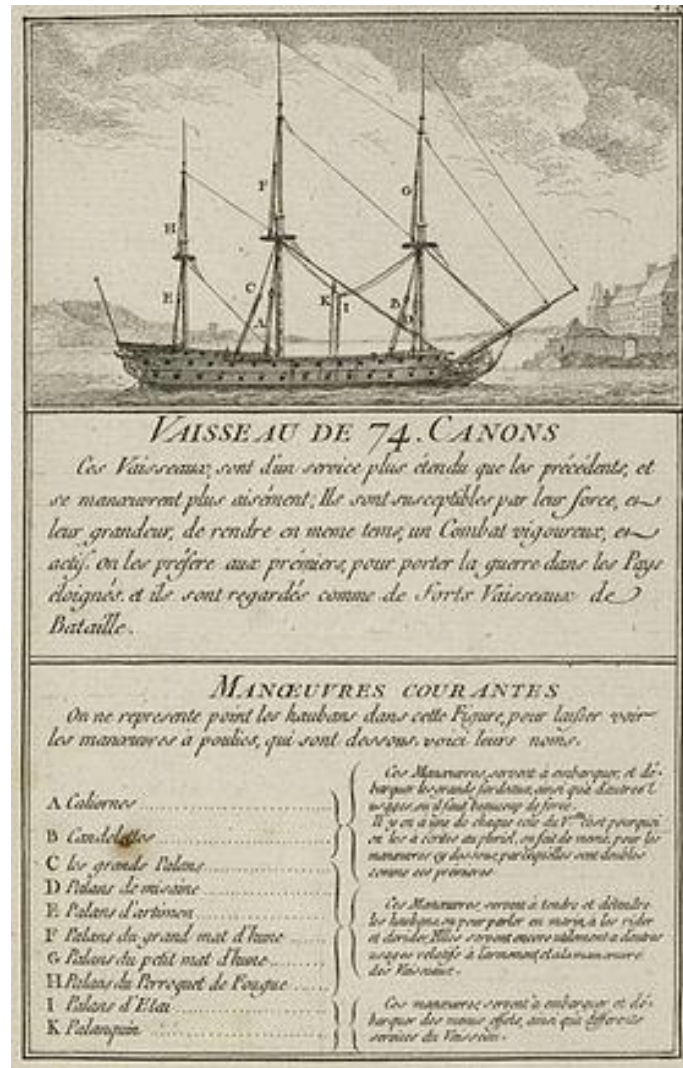 F
G
H
E
C
K
I
B
A
D
VAISSEAU DE 74. CANONS
Ces Vaisseaux, sont d'un service plus étendu que les précédents, et
se manœuvrent plus aisément; Ils sont susceptibles par leur force, et
leur grandeur, de rendre en meme tems, un Combat vigoureux, et
actif. on les préfere aux prémiers, pour porter la guerre dans les Pays
éloignés. et ils sont regardés comme de forts Vaisseaux de
Bataille.
MANŒUVRES COURANTES
On ne represente point les haubans dans cette Figure, pour laisser voir
les manœuvres à poulies, qui sont dessous. voici leurs noms.
A Caliornes
B Candelettes
C les grands Palans
D Palans de misaine
E Palans d'artimon
F Palans du grand mat d'hune
G Palans du petit mat d'hune
H Palans du Perroquet de Fougue
I Palans d'Etai
K Palanquin
Ces Manœuvres, servent à embarquer, et dé-
barquer les grands fardeaux, ainsi qu'à d'autres
usages, où il faut beaucoup de force.
Il y en a une de chaque coté du V.au c'est pourquoi
on les à écrites au pluriel, on fait de meme, pour les
manœuvres cy dessous, parcequ'elles sont doubles
comme ces premieres
Ces Manœuvres servent à tendre et détendre
les haubans, ou pour parler en marin, à les rider
et derider, Elles servent encore utilement a d'autres
usages relatifs à l'armement, et a la manœuvre
des Vaisseaux.
Ces manœuvres servent à embarquer et dé-
barquer des menus effets, ainsi qu'à differents
services du Vaisseau.